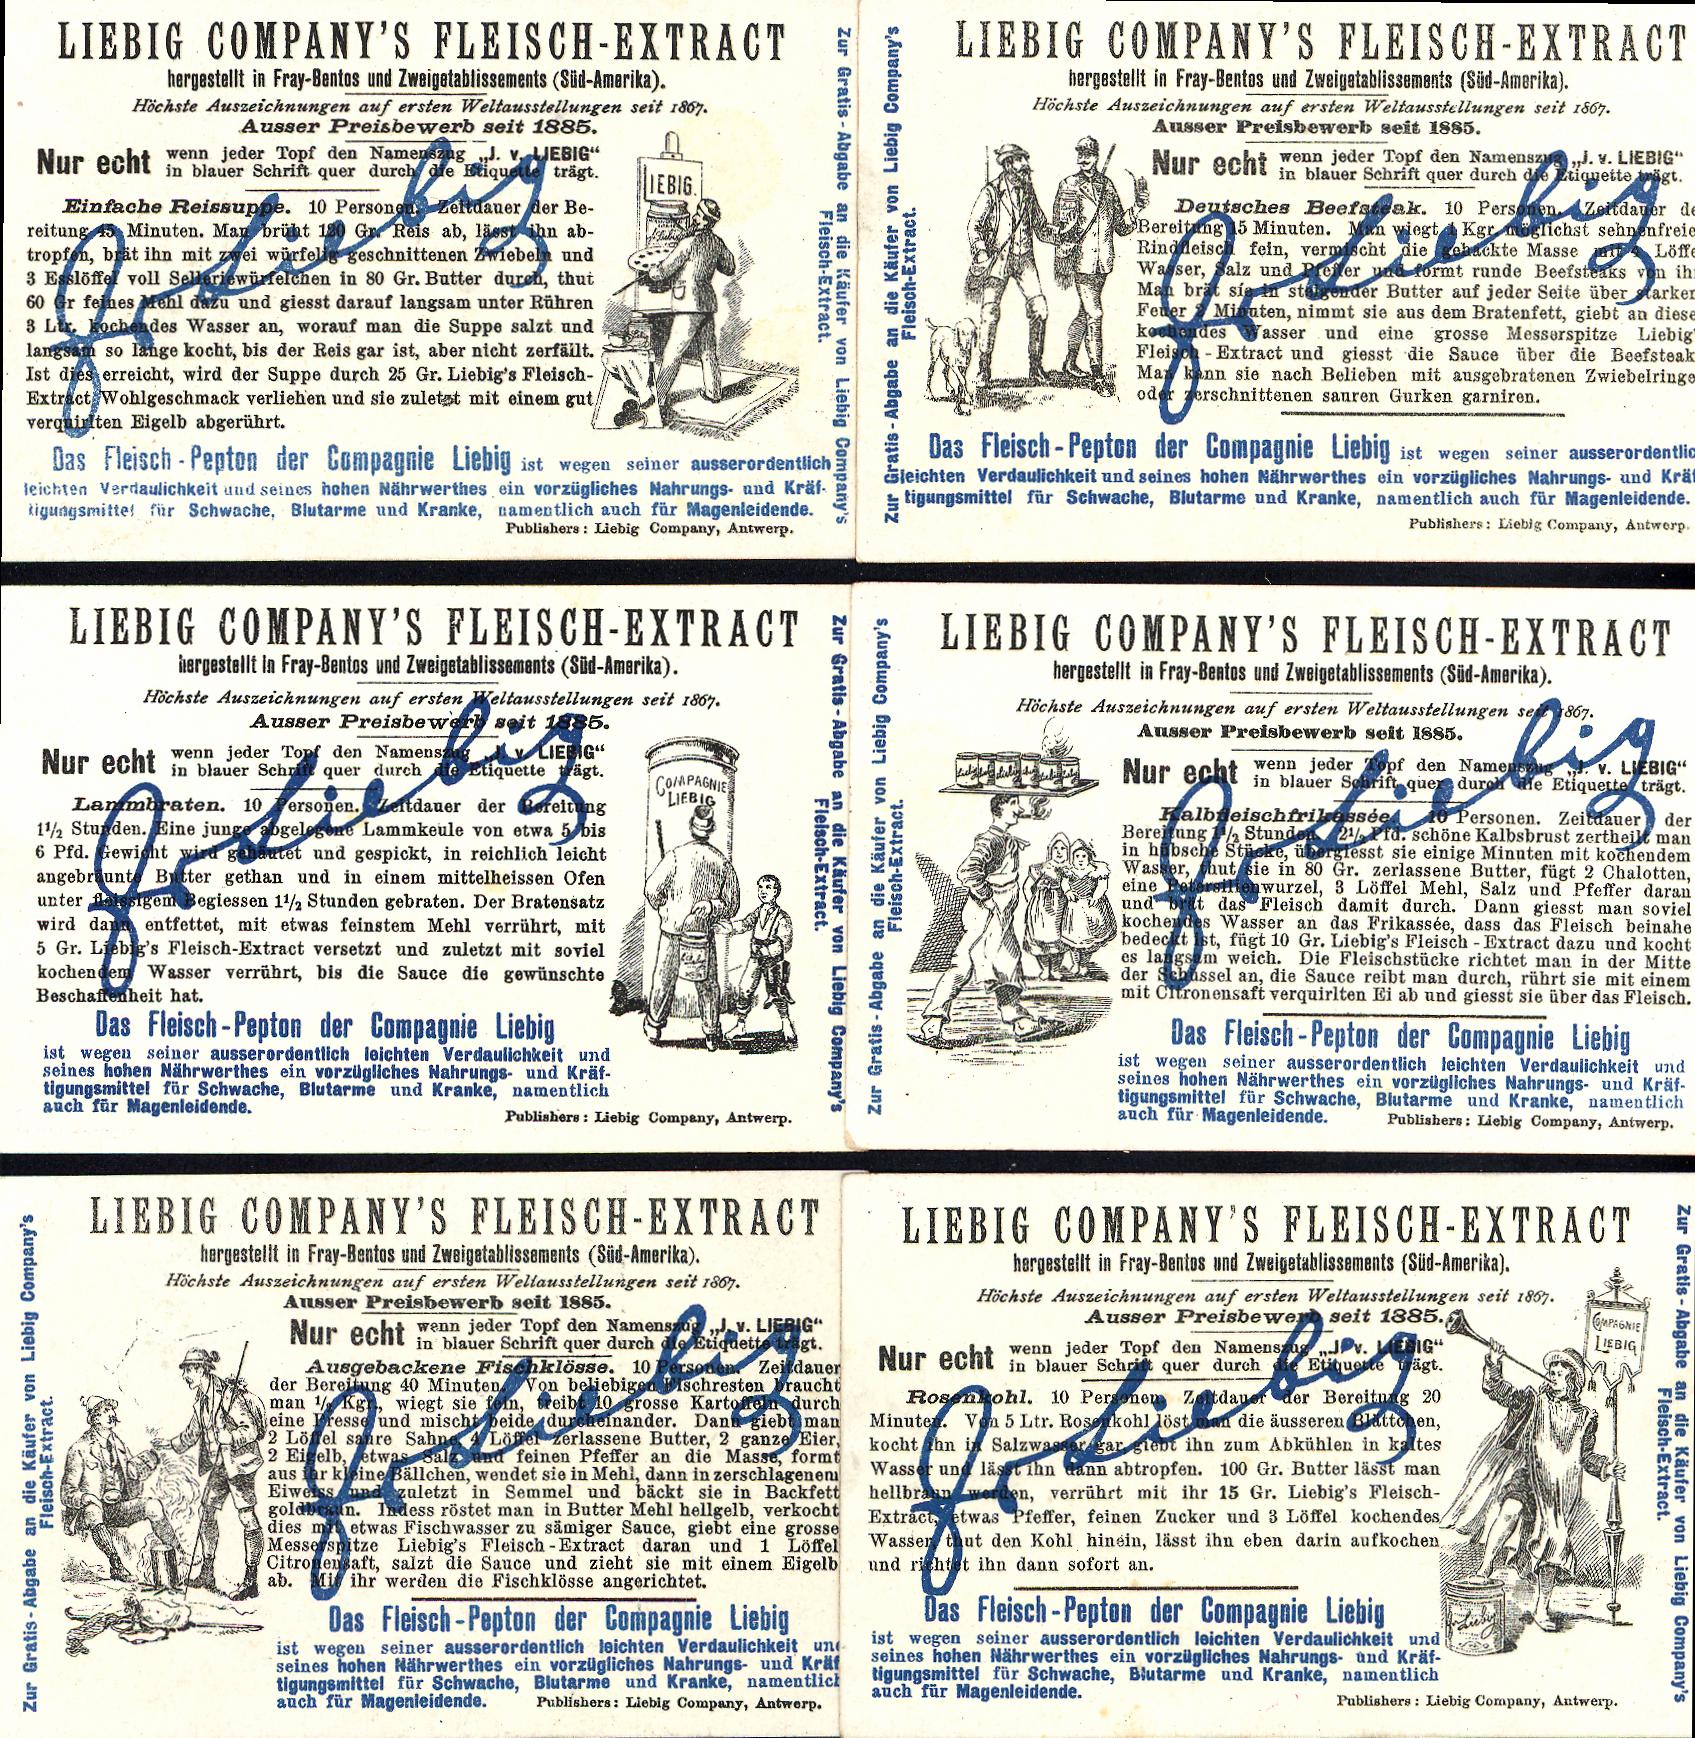 LIEBIG COMPANY'S FLEISCH-EXTRACT
hergestellt in Fray-Bentos und Zweigetablissements (Süd-Amerika).
Höchste Auszeichnungen auf ersten Weltausstellungen seit 1867.
Ausser Preisbewerb seit 1885.
Nur echt wenn jeder Topf den Namenszug „J. v. LIEBIG“
in blauer Schrift quer durch die Etiquette trägt.
Einfache Reissuppe. 10 Personen. Zeitdauer der Be-
reitung 45 Minuten. Man brüht 120 Gr. Reis ab, lässt ihn ab-
tropfen, brät ihn mit zwei würfelig geschnittenen Zwiebeln und
3 Esslöffel voll Selleriewürfelchen in 80 Gr. Butter durch, thut
60 Gr feines Mehl dazu und giesst darauf langsam unter Rühren
3 Ltr. kochendes Wasser an, worauf man die Suppe salzt und
langsam so lange kocht, bis der Reis gar ist, aber nicht zerfällt.
Ist dies erreicht, wird der Suppe durch 25 Gr. Liebig's Fleisch-
Extract Wohlgeschmack verliehen und sie zuletzt mit einem gut
verquirlten Eigelb abgerührt.
LIEBIG.
JvLiebig
Das Fleisch-Pepton der Compagnie Liebig ist wegen seiner ausserordentlich
leichten Verdaulichkeit und seines hohen Nährwerthes ein vorzügliches Nahrungs- und Kräf-
tigungsmittel für Schwache, Blutarme und Kranke, namentlich auch für Magenleidende.
Publishers: Liebig Company, Antwerp.
Zur Gratis-Abgabe an die Käufer von Liebig Company's
Fleisch-Extract.
LIEBIG COMPANY'S FLEISCH-EXTRACT
hergestellt in Fray-Bentos und Zweigetablissements (Süd-Amerika).
Höchste Auszeichnungen auf ersten Weltausstellungen seit 1867.
Ausser Preisbewerb seit 1885.
Nur echt wenn jeder Topf den Namenszug „J. v. LIEBIG“
in blauer Schrift quer durch die Etiquette trägt.
Deutsches Beefsteak. 10 Personen. Zeitdauer de
Bereitung 15 Minuten. Man wiegt 1 Kgr. möglichst sehnenfreie
Rindfleisch fein, vermischt die gehackte Masse mit 4 Löffe
Wasser, Salz und Pfeffer und formt runde Beefsteaks von ih
Man brät sie in steigender Butter auf jeder Seite über starker
Feuer 2 Minuten, nimmt sie aus dem Bratenfett, giebt an diese
kochendes Wasser und eine grosse Messerspitze Liebig'
Fleisch-Extract und giesst die Sauce über die Beefsteak
Man kann sie nach Belieben mit ausgebratenen Zwiebelringe
oder zerschnittenen sauren Gurken garniren.
JvLiebig
Das Fleisch-Pepton der Compagnie Liebig ist wegen seiner ausserordentlic
leichten Verdaulichkeit und seines hohen Nährwerthes ein vorzügliches Nahrungs- und Kräf
tigungsmittel für Schwache, Blutarme und Kranke, namentlich auch für Magenleidende.
Publishers: Liebig Company, Antwerp.
Zur Gratis-Abgabe an die Käufer von Liebig Company's
Fleisch-Extract.
LIEBIG COMPANY'S FLEISCH-EXTRACT
hergestellt in Fray-Bentos und Zweigetablissements (Süd-Amerika).
Höchste Auszeichnungen auf ersten Weltausstellungen seit 1867.
Ausser Preisbewerb seit 1885.
Nur echt wenn jeder Topf den Namenszug „J. v. LIEBIG“
in blauer Schrift quer durch die Etiquette trägt.
Lammbraten. 10 Personen. Zeitdauer der Bereitung
1½ Stunden. Eine junge abgelegene Lammkeule von etwa 5 bis
6 Pfd. Gewicht wird gehäutet und gespickt, in reichlich leicht
angebräunte Butter gethan und in einem mittelheissen Ofen
unter fleissigem Begiessen 1½ Stunden gebraten. Der Bratensatz
wird dann entfettet, mit etwas feinstem Mehl verrührt, mit
5 Gr. Liebig's Fleisch-Extract versetzt und zuletzt mit soviel
kochendem Wasser verrührt, bis die Sauce die gewünschte
Beschaffenheit hat.
COMPAGNIE
LIEBIG
JvLiebig
Das Fleisch-Pepton der Compagnie Liebig
ist wegen seiner ausserordentlich leichten Verdaulichkeit und
seines hohen Nährwerthes ein vorzügliches Nahrungs- und Kräf-
tigungsmittel für Schwache, Blutarme und Kranke, namentlich
auch für Magenleidende.
Publishers: Liebig Company, Antwerp.
Zur Gratis-Abgabe an die Käufer von Liebig Company's
Fleisch-Extract.
LIEBIG COMPANY'S FLEISCH-EXTRACT
hergestellt in Fray-Bentos und Zweigetablissements (Süd-Amerika).
Höchste Auszeichnungen auf ersten Weltausstellungen seit 1867.
Ausser Preisbewerb seit 1885.
Nur echt wenn jeder Topf den Namenszug „J. v. LIEBIG“
in blauer Schrift quer durch die Etiquette trägt.
Kalbfleischfrikassée. 10 Personen. Zeitdauer der
Bereitung 1½ Stunden. 2½ Pfd. schöne Kalbsbrust zertheilt man
in hübsche Stücke, übergiesst sie einige Minuten mit kochendem
Wasser, thut sie in 80 Gr. zerlassene Butter, fügt 2 Chalotten,
eine Petersilienwurzel, 3 Löffel Mehl, Salz und Pfeffer daran
und brät das Fleisch damit durch. Dann giesst man soviel
kochendes Wasser an das Frikassée, dass das Fleisch beinahe
bedeckt ist, fügt 10 Gr. Liebig's Fleisch-Extract dazu und kocht
es langsam weich. Die Fleischstücke richtet man in der Mitte
der Schüssel an, die Sauce reibt man durch, rührt sie mit einem
mit Citronensaft verquirlten Ei ab und giesst sie über das Fleisch.
JvLiebig
Das Fleisch-Pepton der Compagnie Liebig
ist wegen seiner ausserordentlich leichten Verdaulichkeit und
seines hohen Nährwerthes ein vorzügliches Nahrungs- und Kräf-
tigungsmittel für Schwache, Blutarme und Kranke, namentlich
auch für Magenleidende.
Publishers: Liebig Company, Antwerp.
Zur Gratis-Abgabe an die Käufer von Liebig Company's
Fleisch-Extract.
LIEBIG COMPANY'S FLEISCH-EXTRACT
hergestellt in Fray-Bentos und Zweigetablissements (Süd-Amerika).
Höchste Auszeichnungen auf ersten Weltausstellungen seit 1867.
Ausser Preisbewerb seit 1885.
Nur echt wenn jeder Topf den Namenszug „J. v. LIEBIG“
in blauer Schrift quer durch die Etiquette trägt.
Ausgebackene Fischklösse. 10 Personen. Zeitdauer
der Bereitung 40 Minuten. Von beliebigen Fischresten braucht
man ½ Kgr., wiegt sie fein, treibt 10 grosse Kartoffeln durch
eine Presse und mischt beide durcheinander. Dann giebt man
2 Löffel saure Sahne, 4 Löffel zerlassene Butter, 2 ganze Eier,
2 Eigelb, etwas Salz und feinen Pfeffer an die Masse, formt
aus ihr kleine Bällchen, wendet sie in Mehl, dann in zerschlagenem
Eiweiss und zuletzt in Semmel und bäckt sie in Backfett
goldbraun. Indess röstet man in Butter Mehl hellgelb, verkocht
dies mit etwas Fischwasser zu sämiger Sauce, giebt eine grosse
Messerspitze Liebig's Fleisch-Extract daran und 1 Löffel
Citronensaft, salzt die Sauce und zieht sie mit einem Eigelb
ab. Mit ihr werden die Fischklösse angerichtet.
JvLiebig
Das Fleisch-Pepton der Compagnie Liebig
ist wegen seiner ausserordentlich leichten Verdaulichkeit und
seines hohen Nährwerthes ein vorzügliches Nahrungs- und Kräf
tigungsmittel für Schwache, Blutarme und Kranke, namentlich
auch für Magenleidende.
Publishers: Liebig Company, Antwerp.
Zur Gratis-Abgabe an die Käufer von Liebig Company's
Fleisch-Extract.
LIEBIG COMPANY'S FLEISCH-EXTRACT
hergestellt in Fray-Bentos und Zweigetablissements (Süd-Amerika).
Höchste Auszeichnungen auf ersten Weltausstellungen seit 1867.
Ausser Preisbewerb seit 1885.
Nur echt wenn jeder Topf den Namenszug „J. v. LIEBIG“
in blauer Schrift quer durch die Etiquette trägt.
Rosenkohl. 10 Personen. Zeitdauer der Bereitung 20
Minuten. Von 5 Ltr. Rosenkohl löst man die äusseren Blättchen,
kocht ihn in Salzwasser gar, giebt ihn zum Abkühlen in kaltes
Wasser und lässt ihn dann abtropfen. 100 Gr. Butter lässt man
hellbraun werden, verrührt mit ihr 15 Gr. Liebig's Fleisch-
Extract, etwas Pfeffer, feinen Zucker und 3 Löffel kochendes
Wasser, thut den Kohl hinein, lässt ihn eben darin aufkochen
und richtet ihn dann sofort an.
COMPAGNIE
LIEBIG
Liebig
JvLiebig
Das Fleisch-Pepton der Compagnie Liebig
ist wegen seiner ausserordentlich leichten Verdaulichkeit und
seines hohen Nährwerthes ein vorzügliches Nahrungs- und Kräf-
tigungsmittel für Schwache, Blutarme und Kranke, namentlich
auch für Magenleidende.
Publishers: Liebig Company, Antwerp.
Zur Gratis-Abgabe an die Käufer von Liebig Company's
Fleisch-Extract.